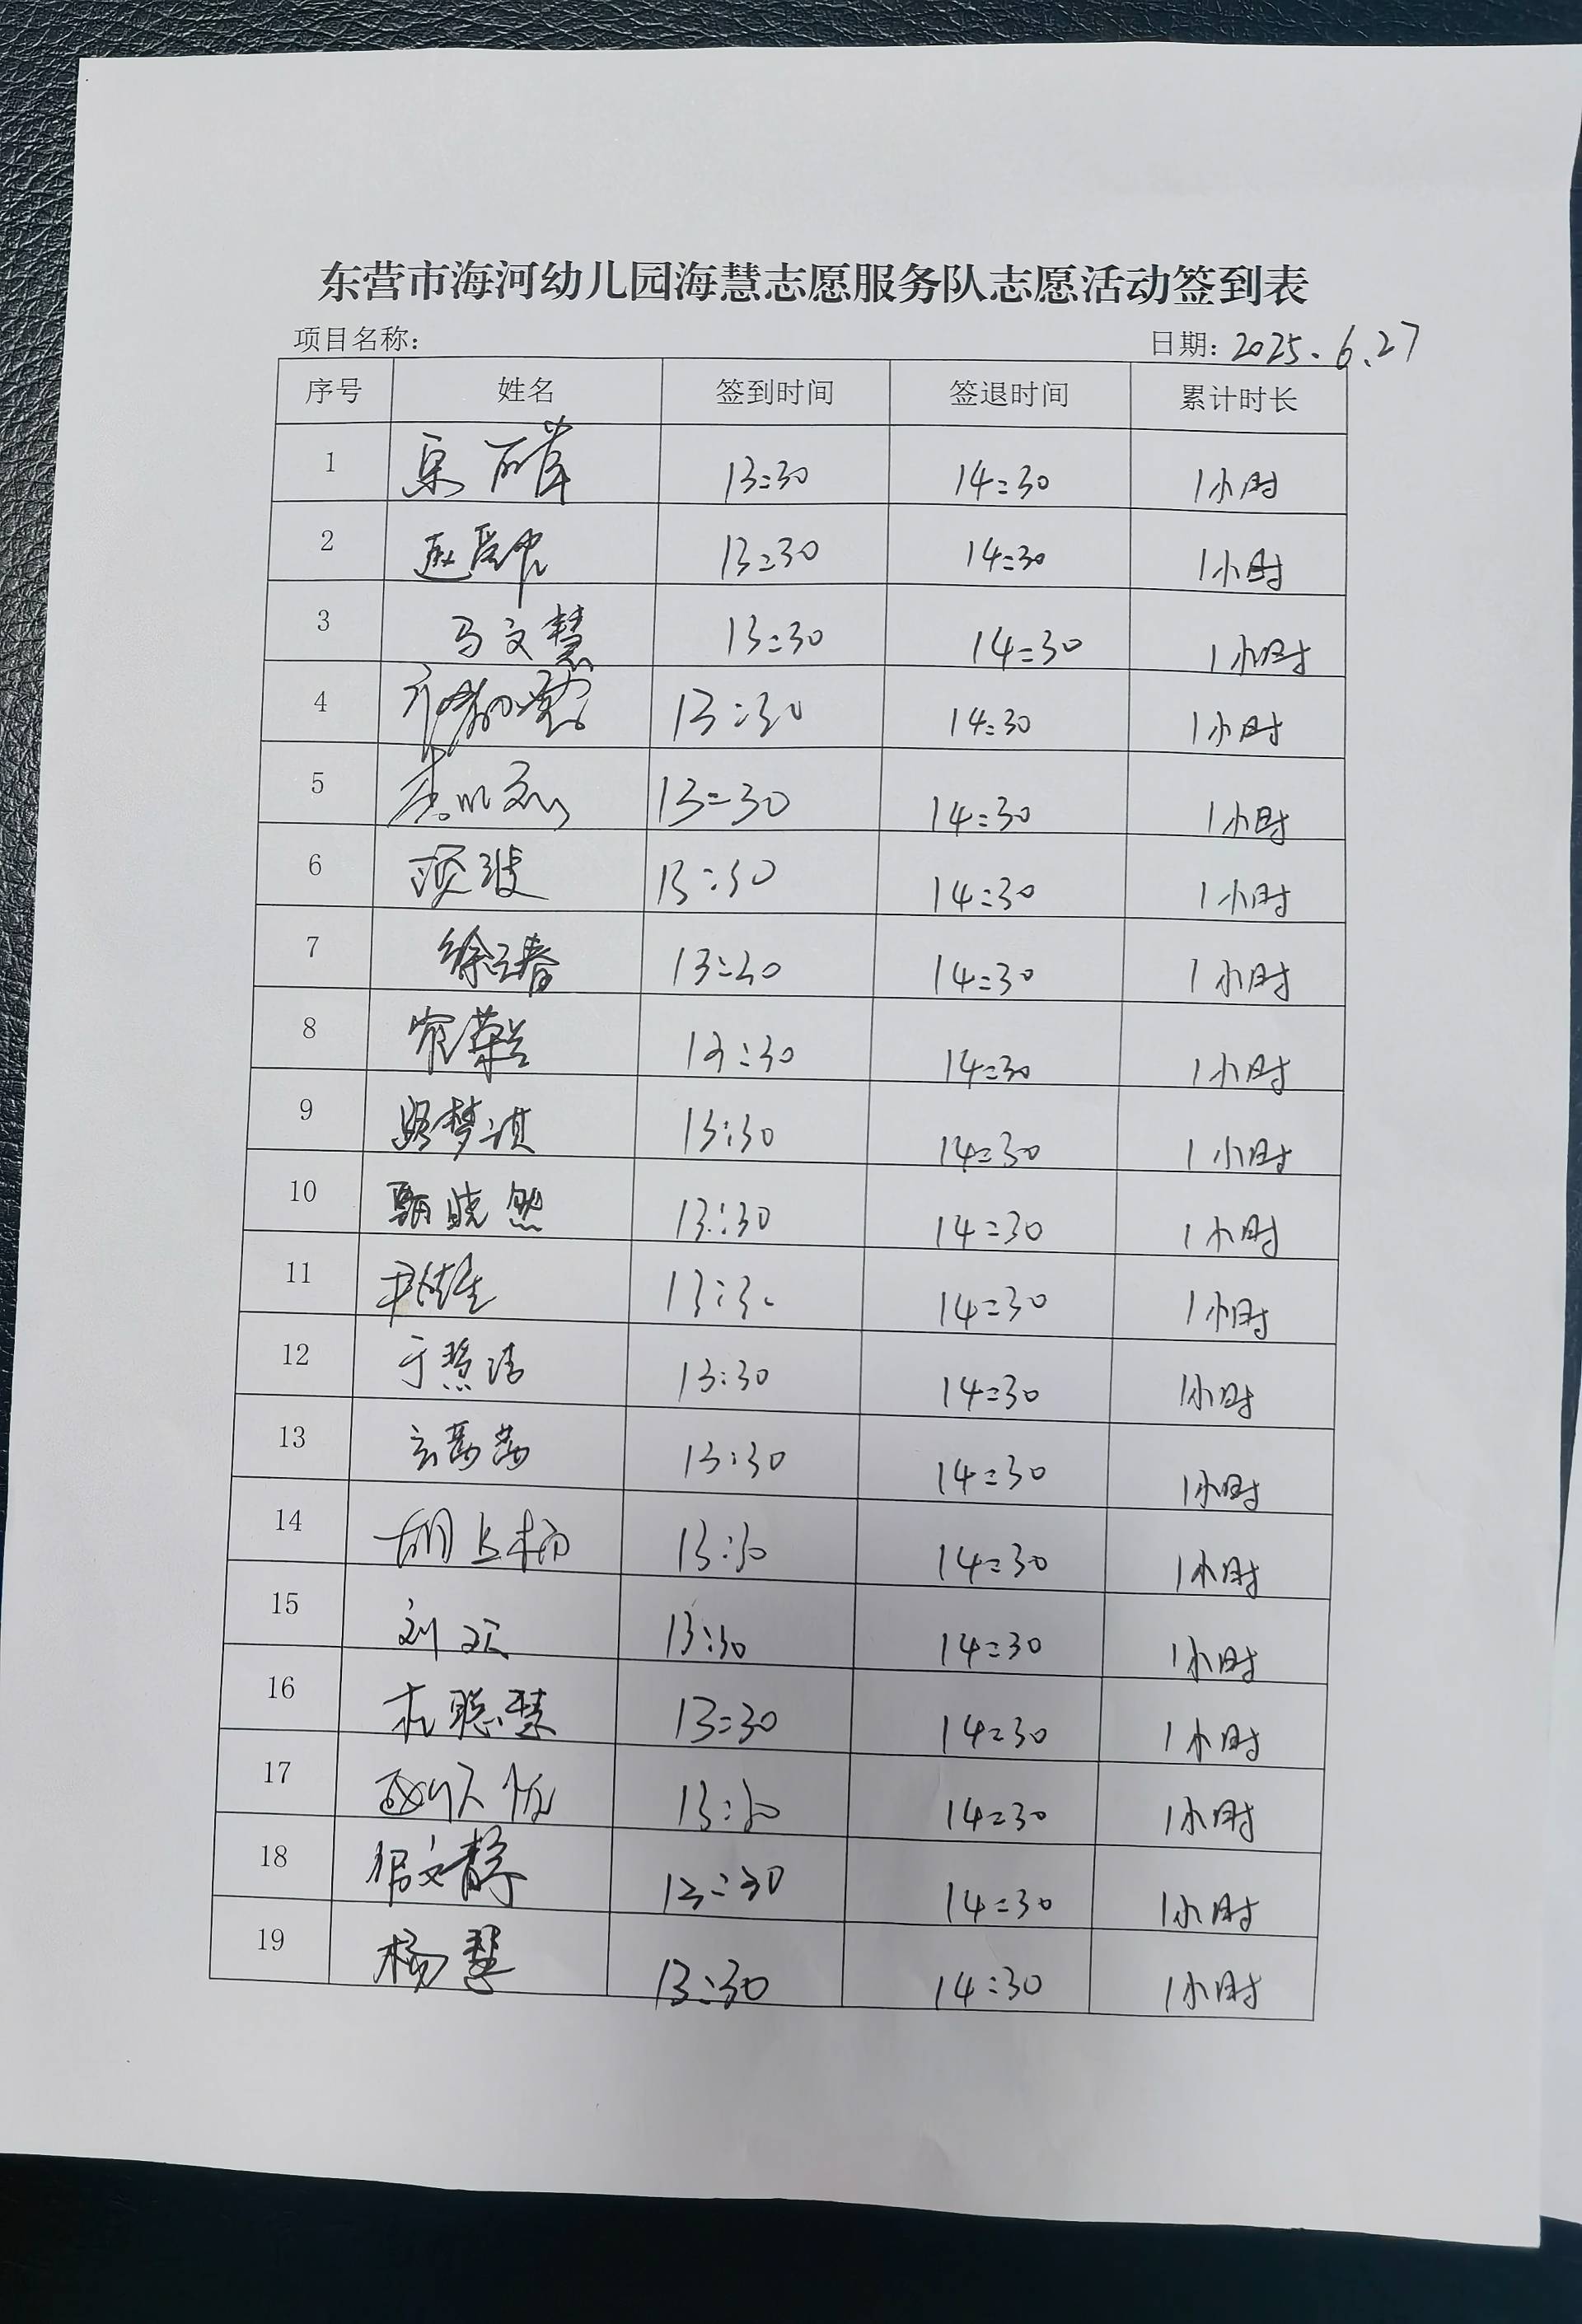 东营市海河幼儿园海慧志愿服务队志愿活动签到表
项目名称： 日期：2025.6.27
序号 姓名 签到时间 签退时间 累计时长
1 13:30 14:30 1小时
2 13:30 14:30 1小时
3 马文慧 13:30 14:30 1小时
4 13:30 14:30 1小时
5 13:30 14:30 1小时
6 13:30 14:30 1小时
7 徐云春 13:30 14:30 1小时
8 13:30 14:30 1小时
9 路梦琪 13:30 14:30 1小时
10 晓然 13:30 14:30 1小时
11 13:30 14:30 1小时
12 于慧洁 13:30 14:30 1小时
13 13:30 14:30 1小时
14 胡 13:30 14:30 1小时
15 刘 13:30 14:30 1小时
16 聪慧 13:30 14:30 1小时
17 13:30 14:30 1小时
18 文静 13:30 14:30 1小时
19 杨慧 13:30 14:30 1小时